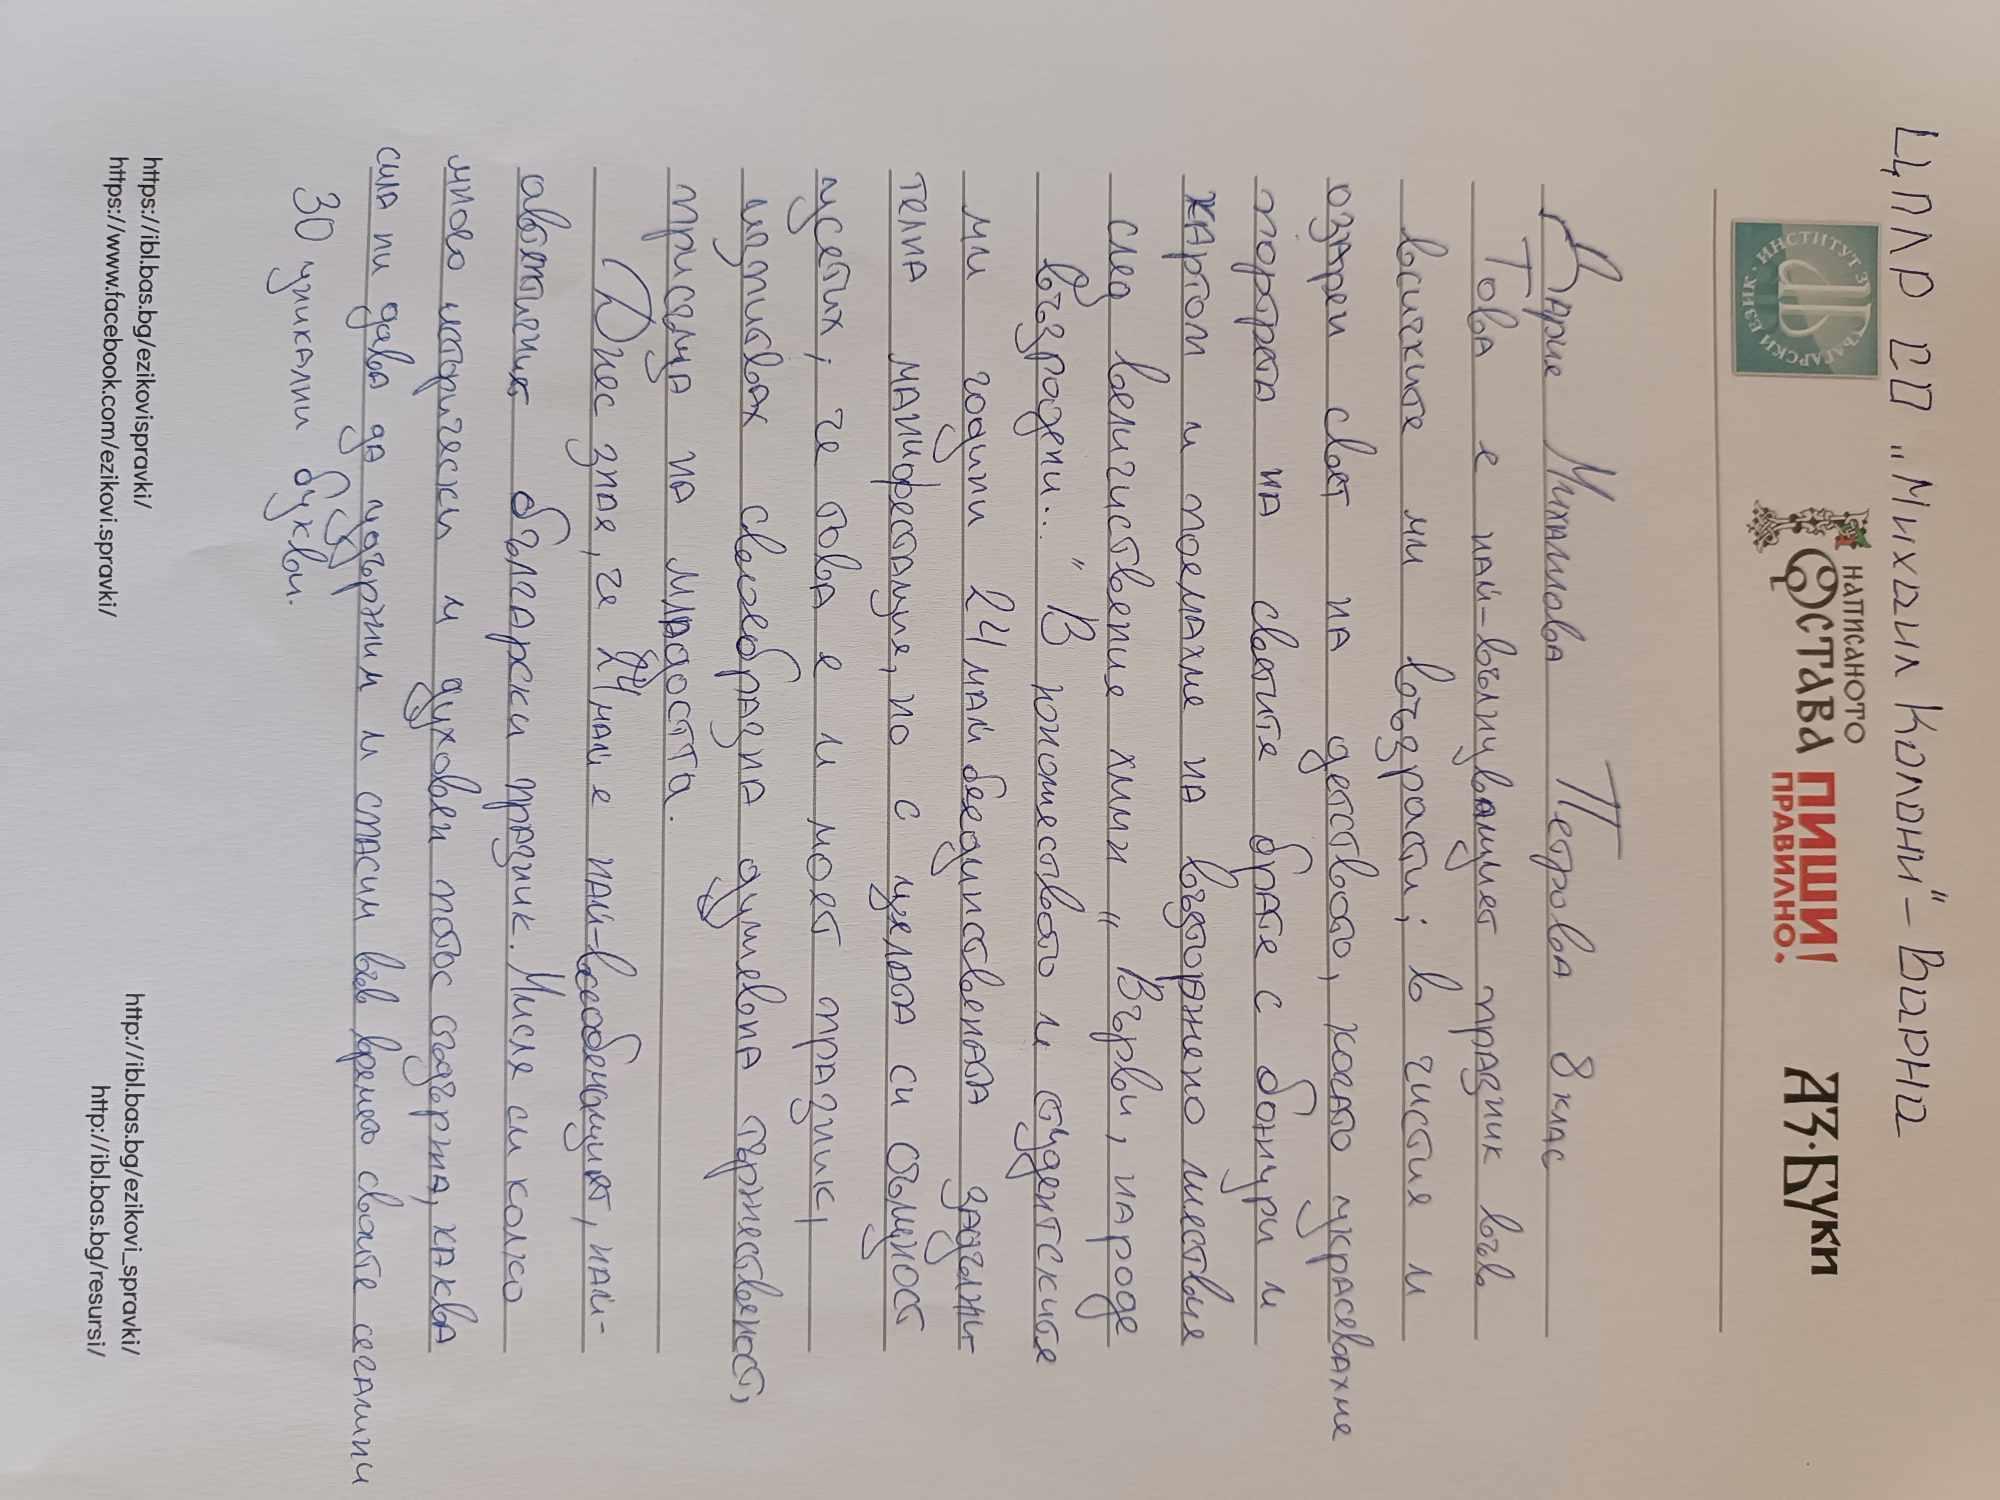 ЦПЛР ОП „Михаил Колони" – Варна
ИНСТИТУТ ЗА БЪЛГАРСКИ ЕЗИК
НАПИСАНОТО
ОСТАВА
ПИШИ!
ПРАВИЛНО.
АЗ·БУКИ
Дарие Михаилова Петрова 8 клас
Това е най-вълнуващиет празник във
всичките ми възрасти; в чистия и
озарен свет на детството, когато украсевахме
портрета на светите братя с божури и
хартои и поемахме на въсторжено шествие
след величиствения химн „Върви, народе
възродени..." В юношеството и студентските
ми години 24 май бе единствената задължи-
телна манифестация, но с целта си същност
усетих, че това е и моет празник,
изпитвах своеобразна душевна тържественост,
присъща на младостта.
Днес зная, че 24 май е най-всеобемащият, най-
автентичният български празник. Мисля си колко
много исторически и духовен патос съдържа, каква
сила ни дава да удържим и спасим във времето своите сегашни
30 уникални букви.
https://ibl.bas.bg/ezikovispravki/
https://www.facebook.com/ezikovi.spravki/
http://ibl.bas.bg/ezikovi_spravki/
http://ibl.bas.bg/resursi/